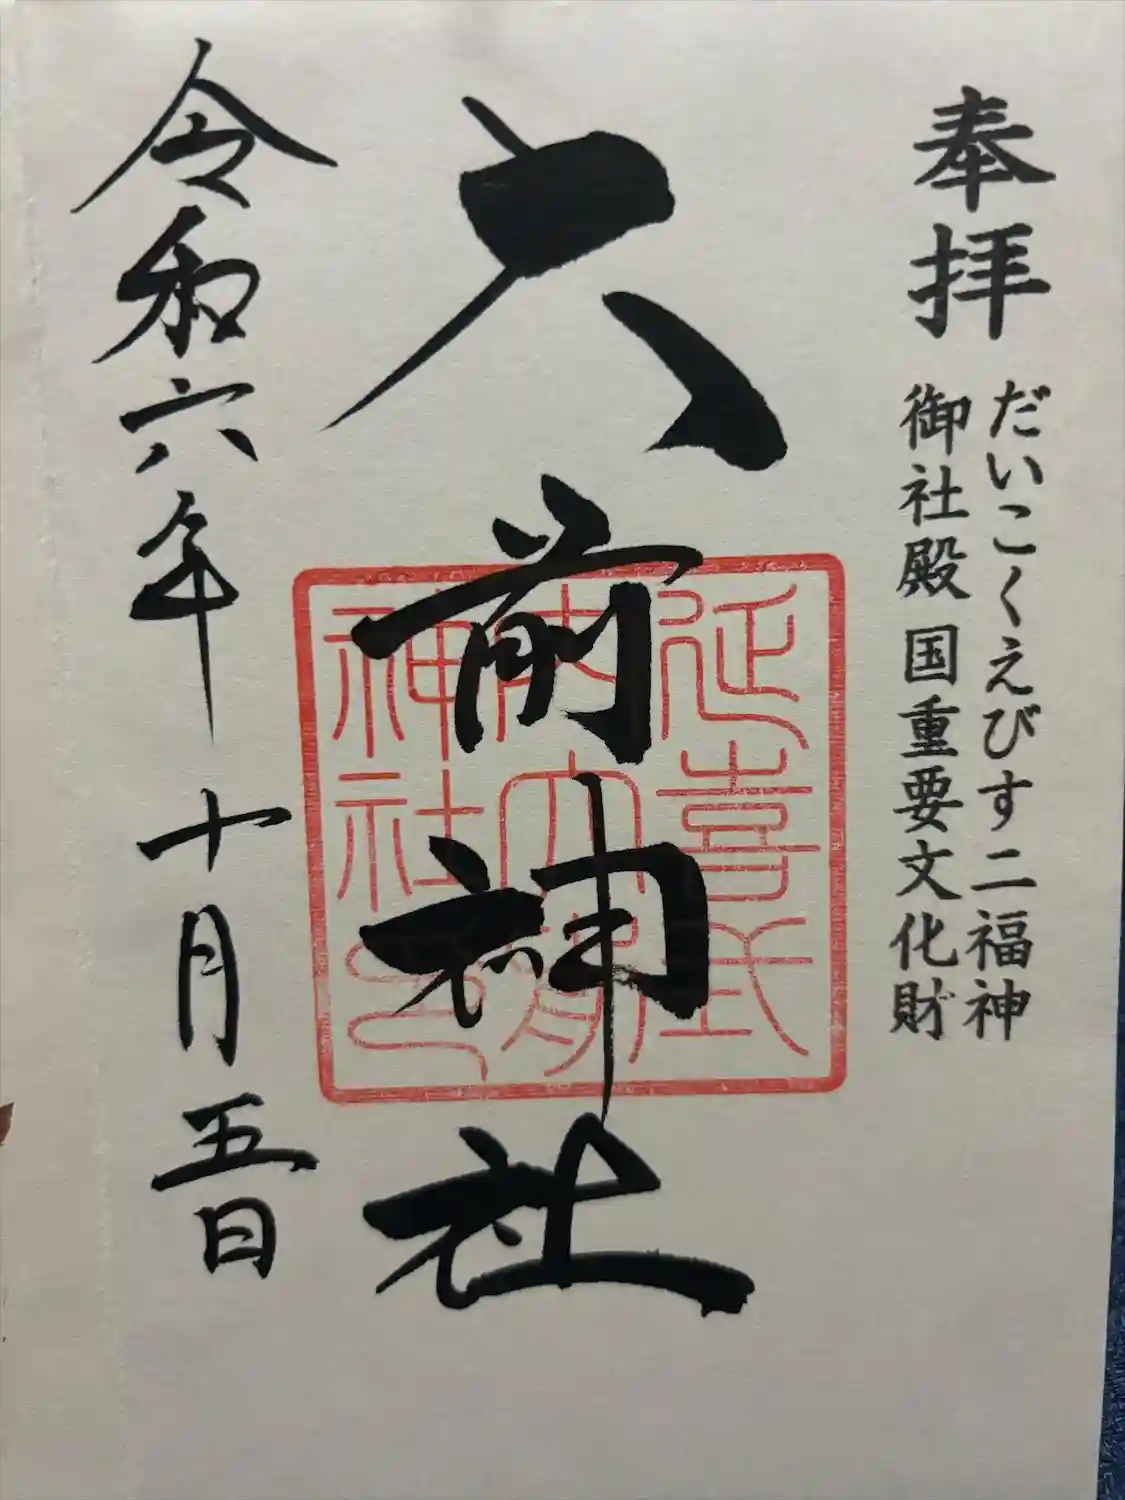 奉拝
だいこくえびす二福神
御社殿 国重要文化財
大前神社
延喜式
内大前
神社印
令和六年 十月五日